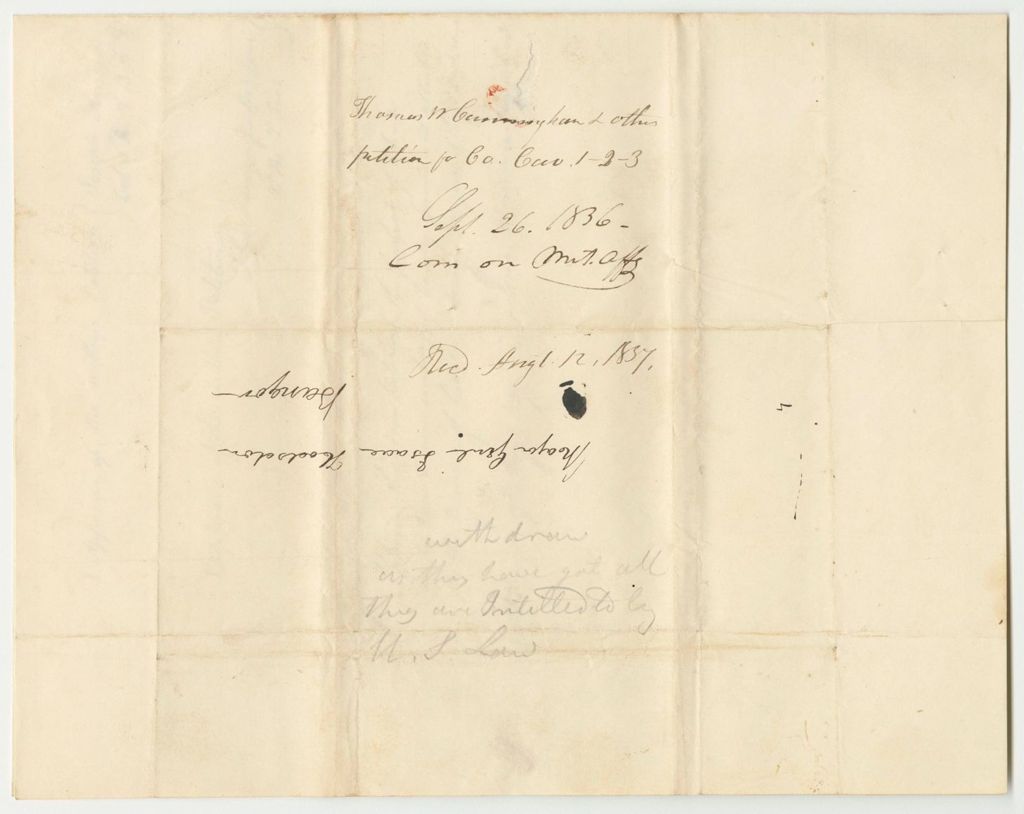 Thomas W Cunningham & others
petition for Co. Cav. 1-2-3
Sept. 26. 1836-
Com on Mil. Affs
Recd. Augt. 12, 1837.
Major Genl. Isaac Hodsdon
Bangor
withdraw
as they have got all
they are Intitled to by
U. S Law